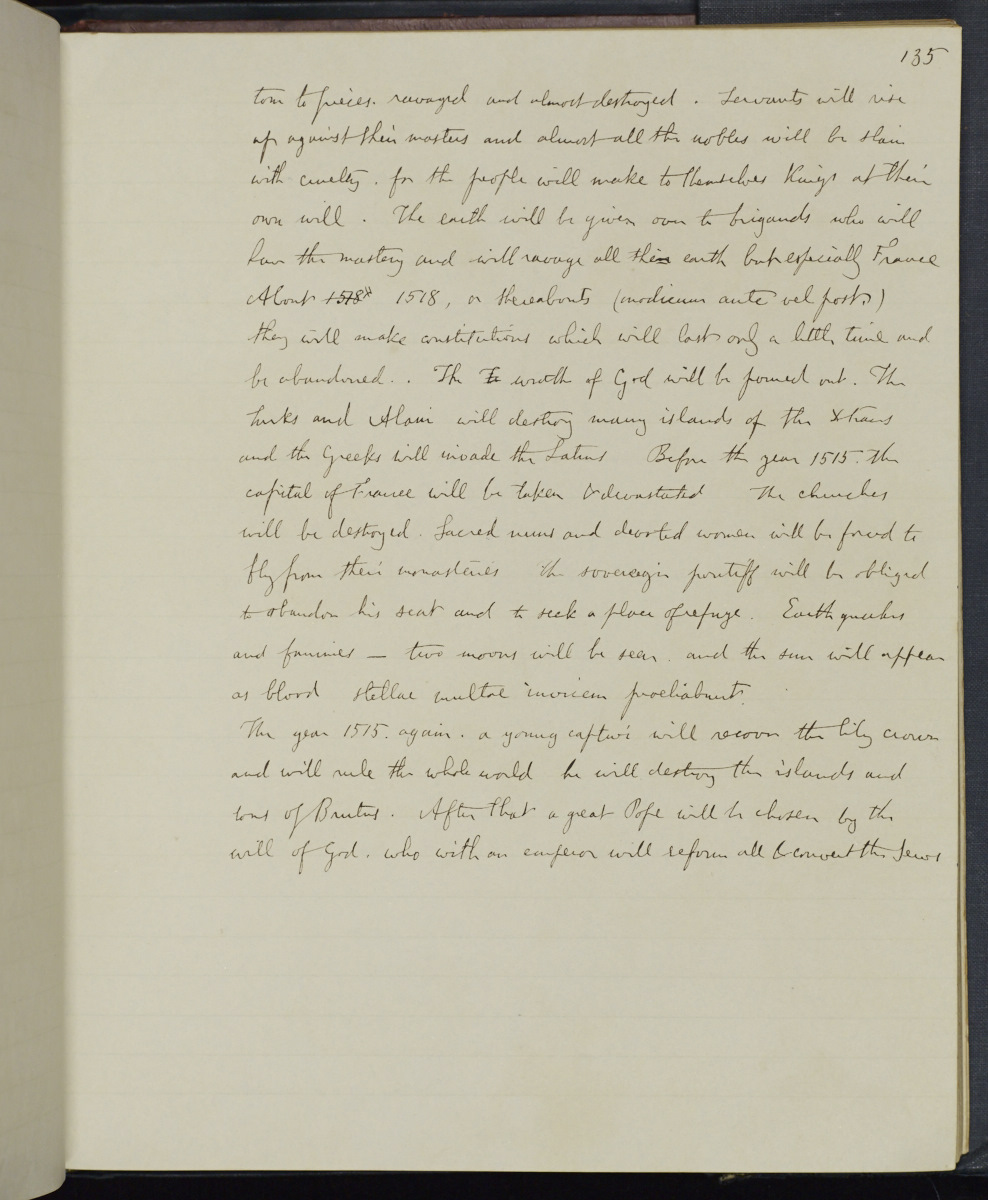 135
torn to pieces. ravaged and almost destroyed. Servants will rise
up against their masters and almost all the nobles will be slain
with cruelty. for the people will make to themselves Kings at their
own will. The earth will be given over to brigands who will
have the mastery and will ravage all their earth but especially France
About 1518 1518, or thereabouts (modicum ante vel post)
they will make constitutions which will last only a little time and
be abandoned.. The wrath of God will be poured out. The
Turks and Alani will destroy many islands of the Xtians
and the Greeks will invade the Latins Before the year 1515. the
capital of France will be taken & devastated The churches
will be destroyed. Sacred nuns and devoted women will be forced to
fly from their monasteries The sovereign pontiff will be obliged
to abandon his seat and to seek a place of refuge. Earthquakes
and famines — two moons will be seen. and the sun will appear
as blood stellae multae invicem proeliabunt.
The year 1515. again. a young captive will recover the lily crown
and will rule the whole world he will destroy the islands and
sons of Brutus. After that a great Pope will be chosen by the
will of God. who with an emperor will reform all & convert the Jews